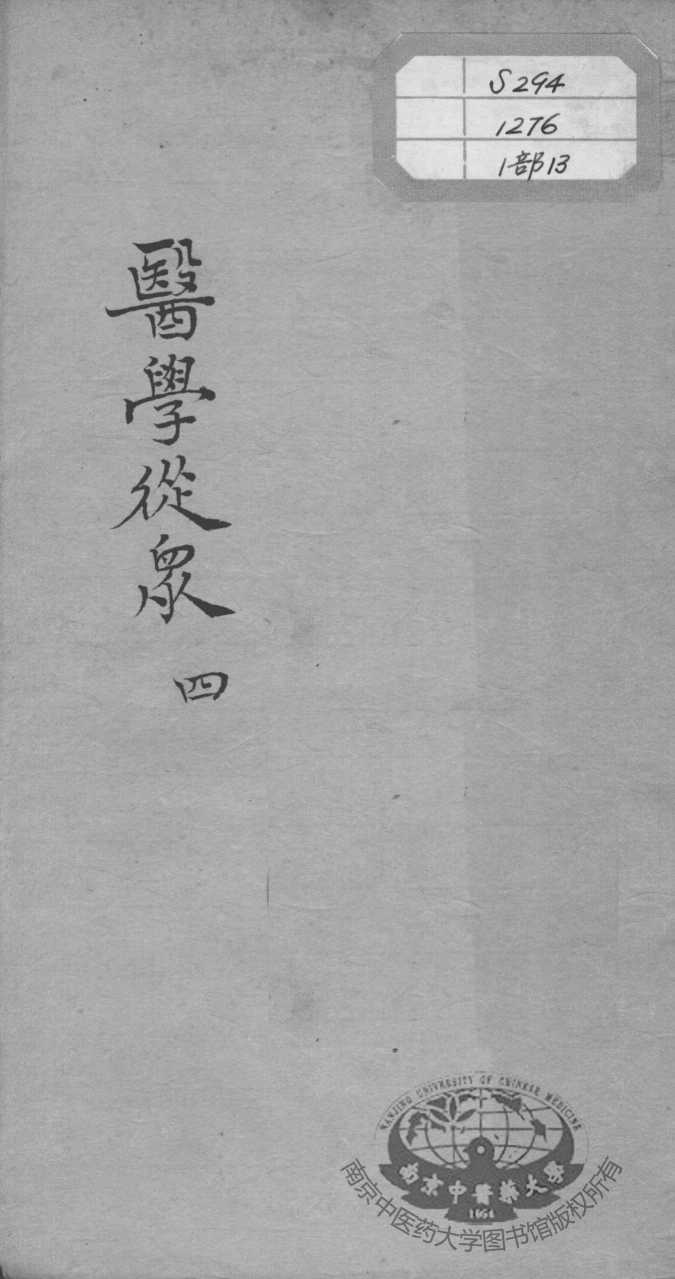 S294
1276
1部13
醫學從眾
四
NANJING UNIVERSITY OF CHINESE MEDICINE
南京中醫藥大學
1954
南京中医药大学图书馆版权所有